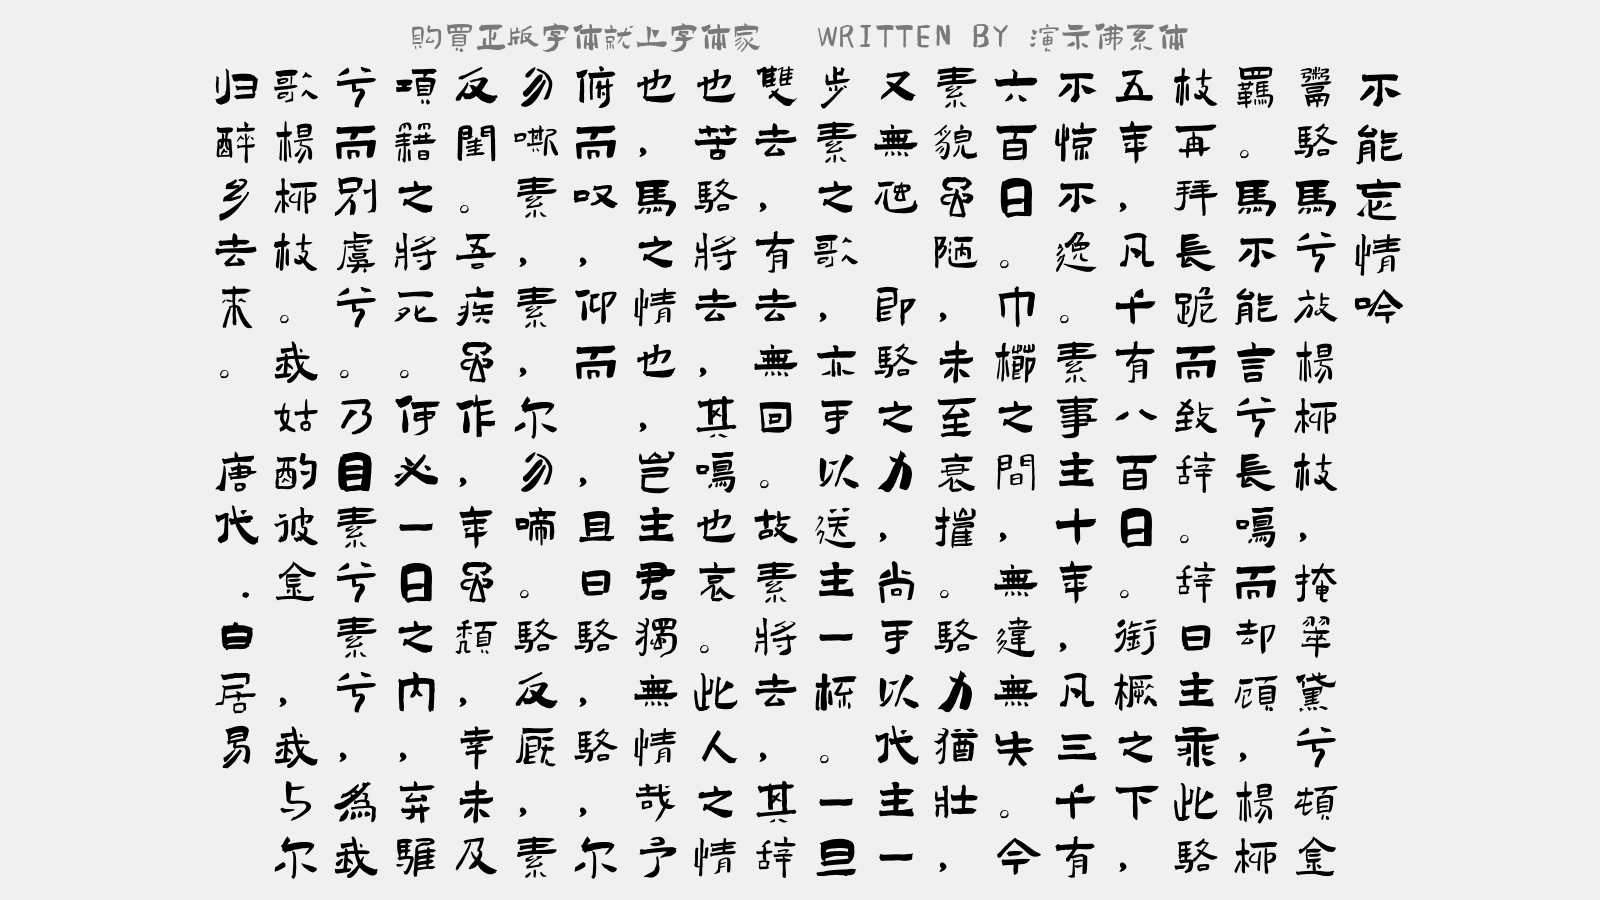 购買正版字体就上字体家 WRITTEN BY 演示佛系体
不能忘情吟
鬻駱馬兮放楊柳枝，掩翠黛兮頓金
羈。馬不能言兮長鳴而却顧，楊柳
枝再拜長跪而致辞。辞曰主乘此駱
五年，凡千有八百日。銜橛之下，
不惊不逸。素事主十年，凡三千有
六百日。巾櫛之間，無違無失。今
素貌虽陋，未至衰摧。駱力猶壮，
又無虺 即駱之力，尚可以代主一
步素之歌，亦可以送主一杯。一旦
雙去，有去無回。故素將去，其辞
也苦駱將去，其鳴也哀。此人之情
也，馬之情也，豈主君獨無情哉予
俯而叹，仰而 ，且曰駱，駱，尔
勿嘶素，素，尔勿啼。駱反厩，素
反閨。吾疾虽作，年虽頹，幸未及
項籍之將死。何必一日之内，弃騅
兮而別虞兮。乃目素兮素兮，為我
歌楊柳枝。我姑酌彼金 ，我与尔
归醉乡去來。 唐代.白居易